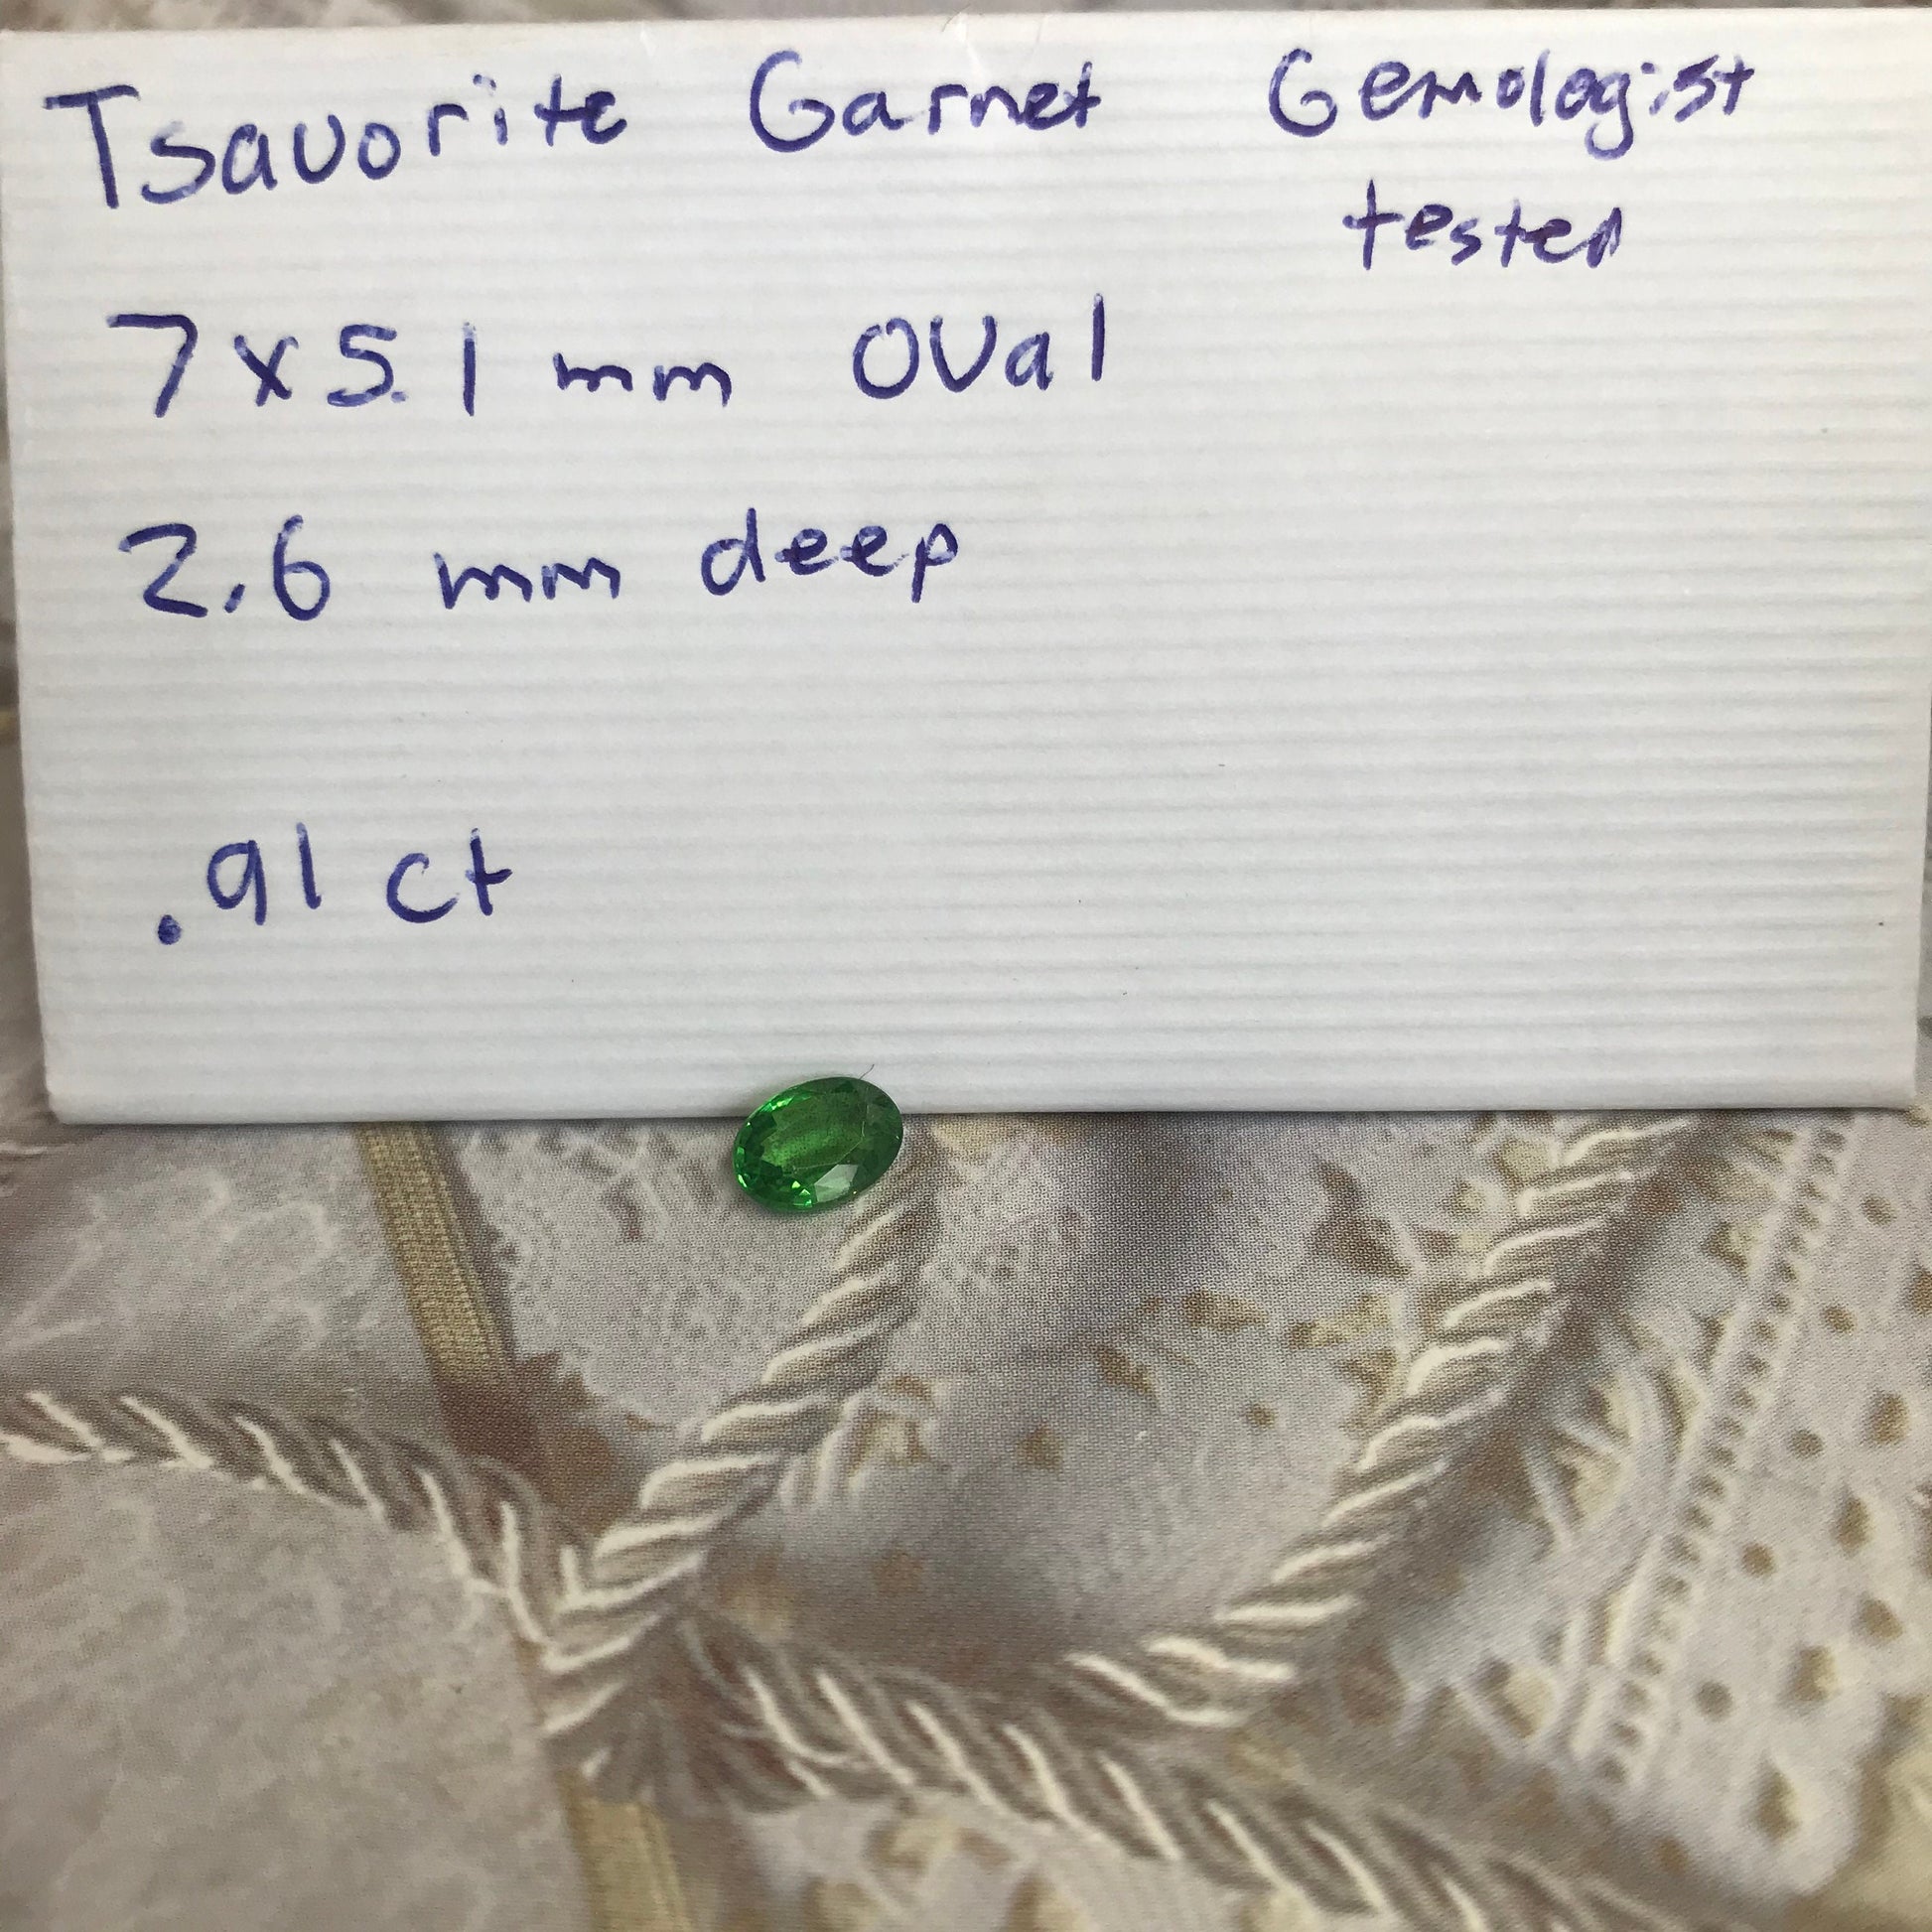 Tsavorite Garnet Gemologist
tested
7 x 5.1 mm oval
2.6 mm deep
.91 ct